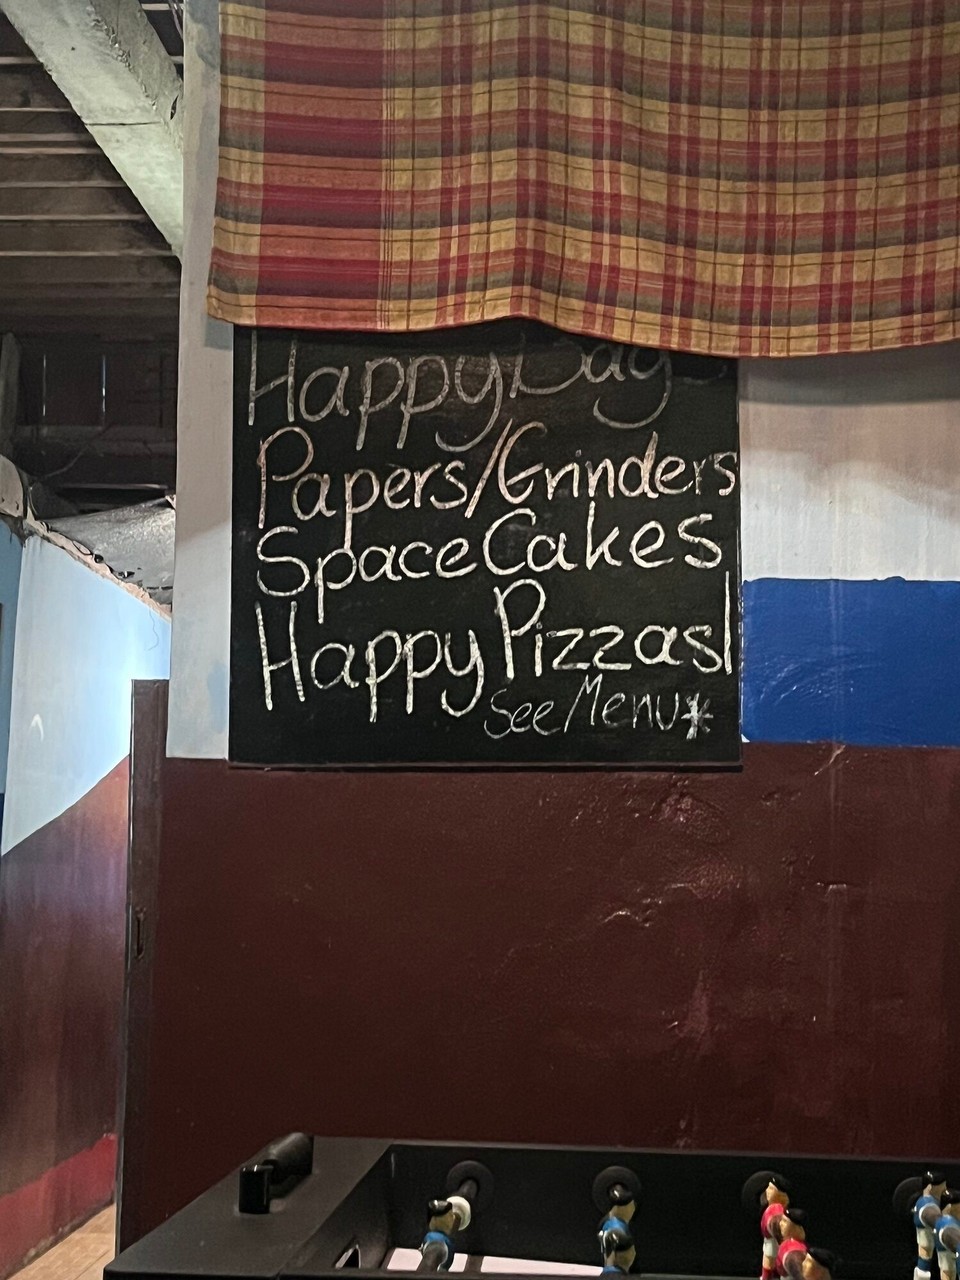 Happy Days
Papers/Grinders
Space Cakes
Happy Pizzas!
See/Menu*